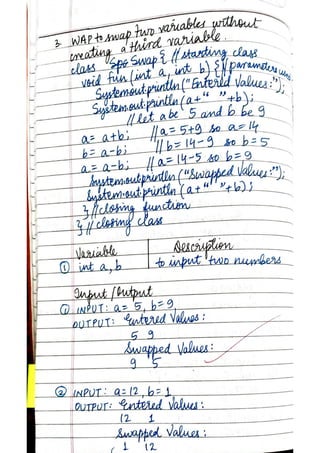 3. WAP to swap two variables without
creating a third variable.
class Swap { // starting class
void fun (int a, int b) { // parameters
System.out.println ("Entered Values:");
System.out.println (a+" "+b);
// let a be 5 and b be 9
a = a+b; // a = 5+9 so a = 14
b = a-b; // b = 14-9 so b = 5
a = a-b; // a = 14-5 so b = 9
System.out.println ("Swapped Values:");
System.out.println (a+" "+b);
} // closing function
} // closing class
Variable Description
① int a, b to input two numbers
Input / Output
① INPUT: a = 5, b = 9
OUTPUT: Entered Values:
5 9
Swapped Values:
9 5
② INPUT: a = 12, b = 1
OUTPUT: Entered Values:
12 1
Swapped Values:
1 12